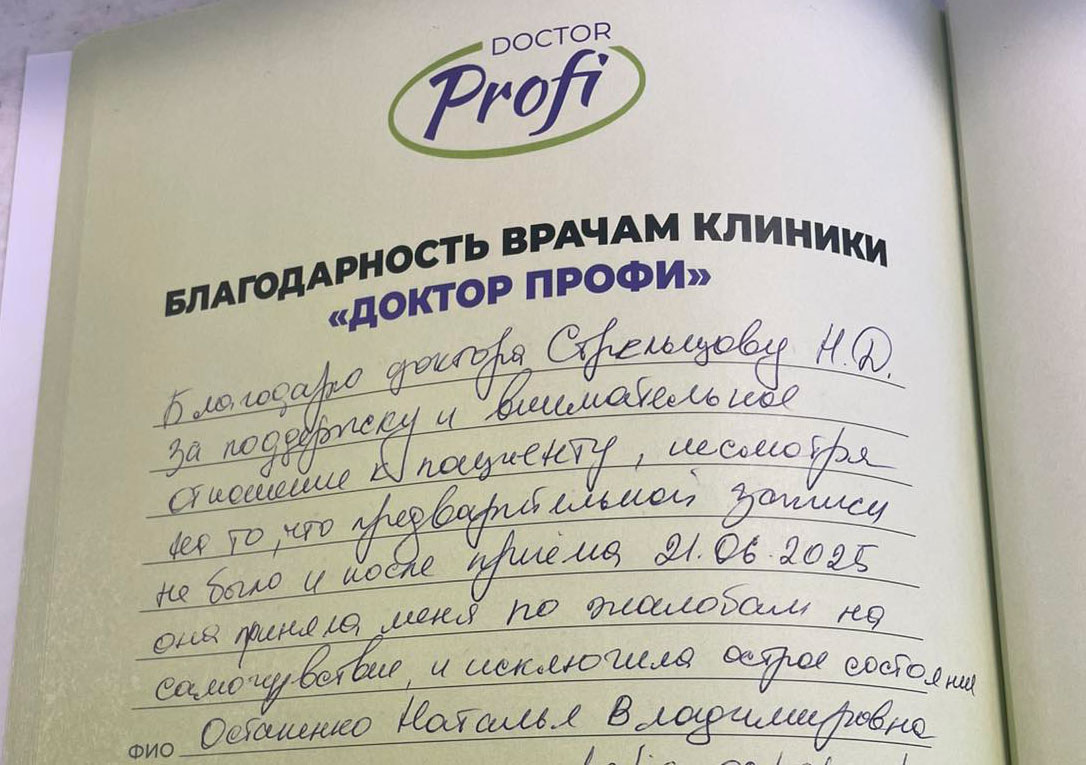 DOCTOR
Profi
БЛАГОДАРНОСТЬ ВРАЧАМ КЛИНИКИ
«ДОКТОР ПРОФИ»
Благодарю доктора Стрельцову Н.Д.
за поддержку и внимательное
отношение к пациенту, несмотря
на то, что предварительной записи
не было и после приёма 21.06.2025
она приняла меня по жалобам на
самочувствие, и исключила острое состояние
ФИО Остапенко Наталья Владимировна